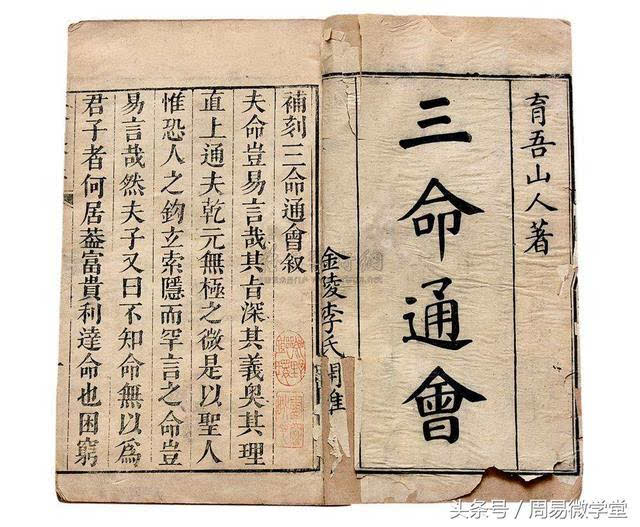 育吾山人著
三命通會
金陵李氏
補刻三命通會叙
夫命豈易言哉其旨深其義奥其理
直上通夫乾元無極之微是以聖人
惟恐人之鈎立索隱而罕言之命豈
易言哉然夫子又曰不知命無以爲
君子者何居葢富貴利達命也困窮
头条号／周易微学堂